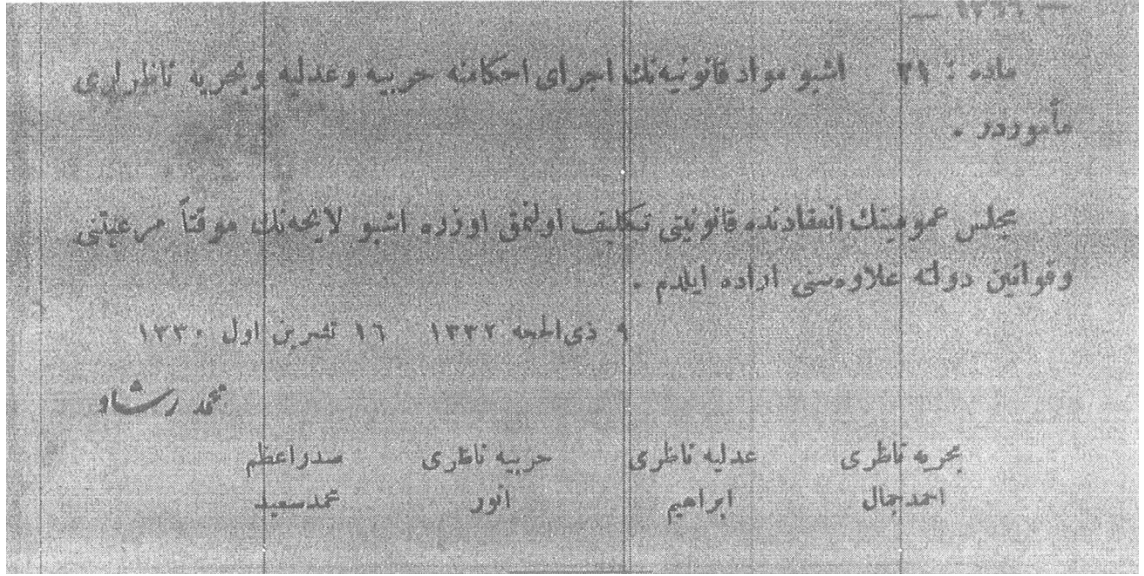 — ١٣٦٦ —
ماده : ٣١ اشبو مواد قانونیه‌نك اجرای احكامنه حربیه وعدلیه وبحریه ناظرلری
مأموردر .
مجلس عمومینك انعقادنده قانونیتی تكلیف اولنمق اوزره اشبو لایحه‌نك موقتاً مرعیتنی
وقوانین دولته علاوه‌سنی اراده ایلدم .
٩ ذی‌الحجه ١٣٣٢ ١٦ تشرین اول ١٣٣٠
محمد رشاد
بحریه ناظری عدلیه ناظری حربیه ناظری صدراعظم
احمدجمال ابراهیم انور محمدسعید